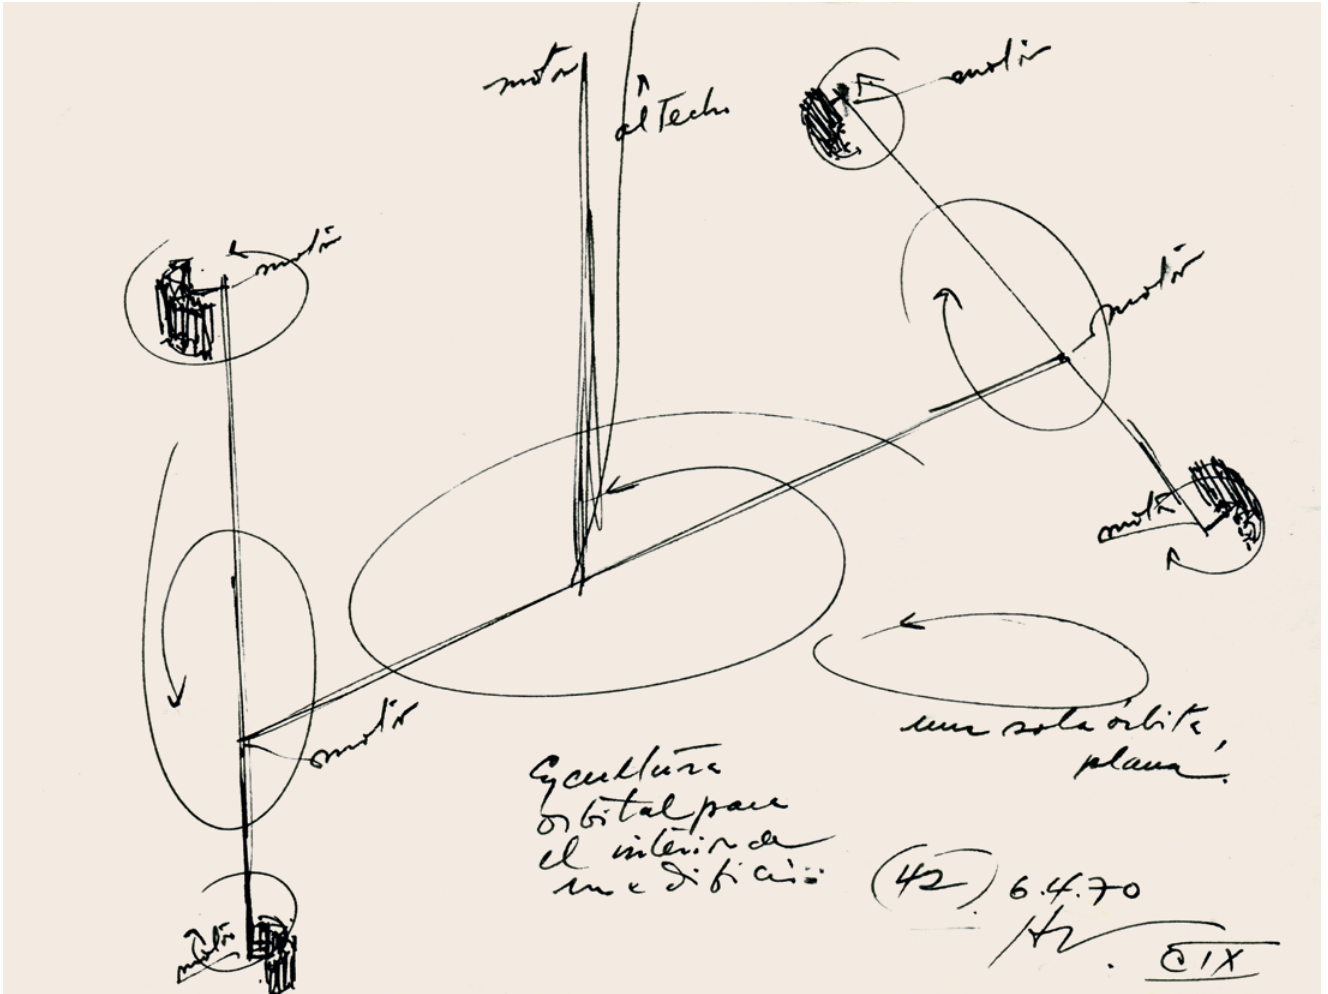 motor
al Techo
motor
motor
motor
motor
motor
motor
una sola órbita,
plana.
Escultura
orbital para
el interior de
un edificio:
(42) 6.4.70
CIX